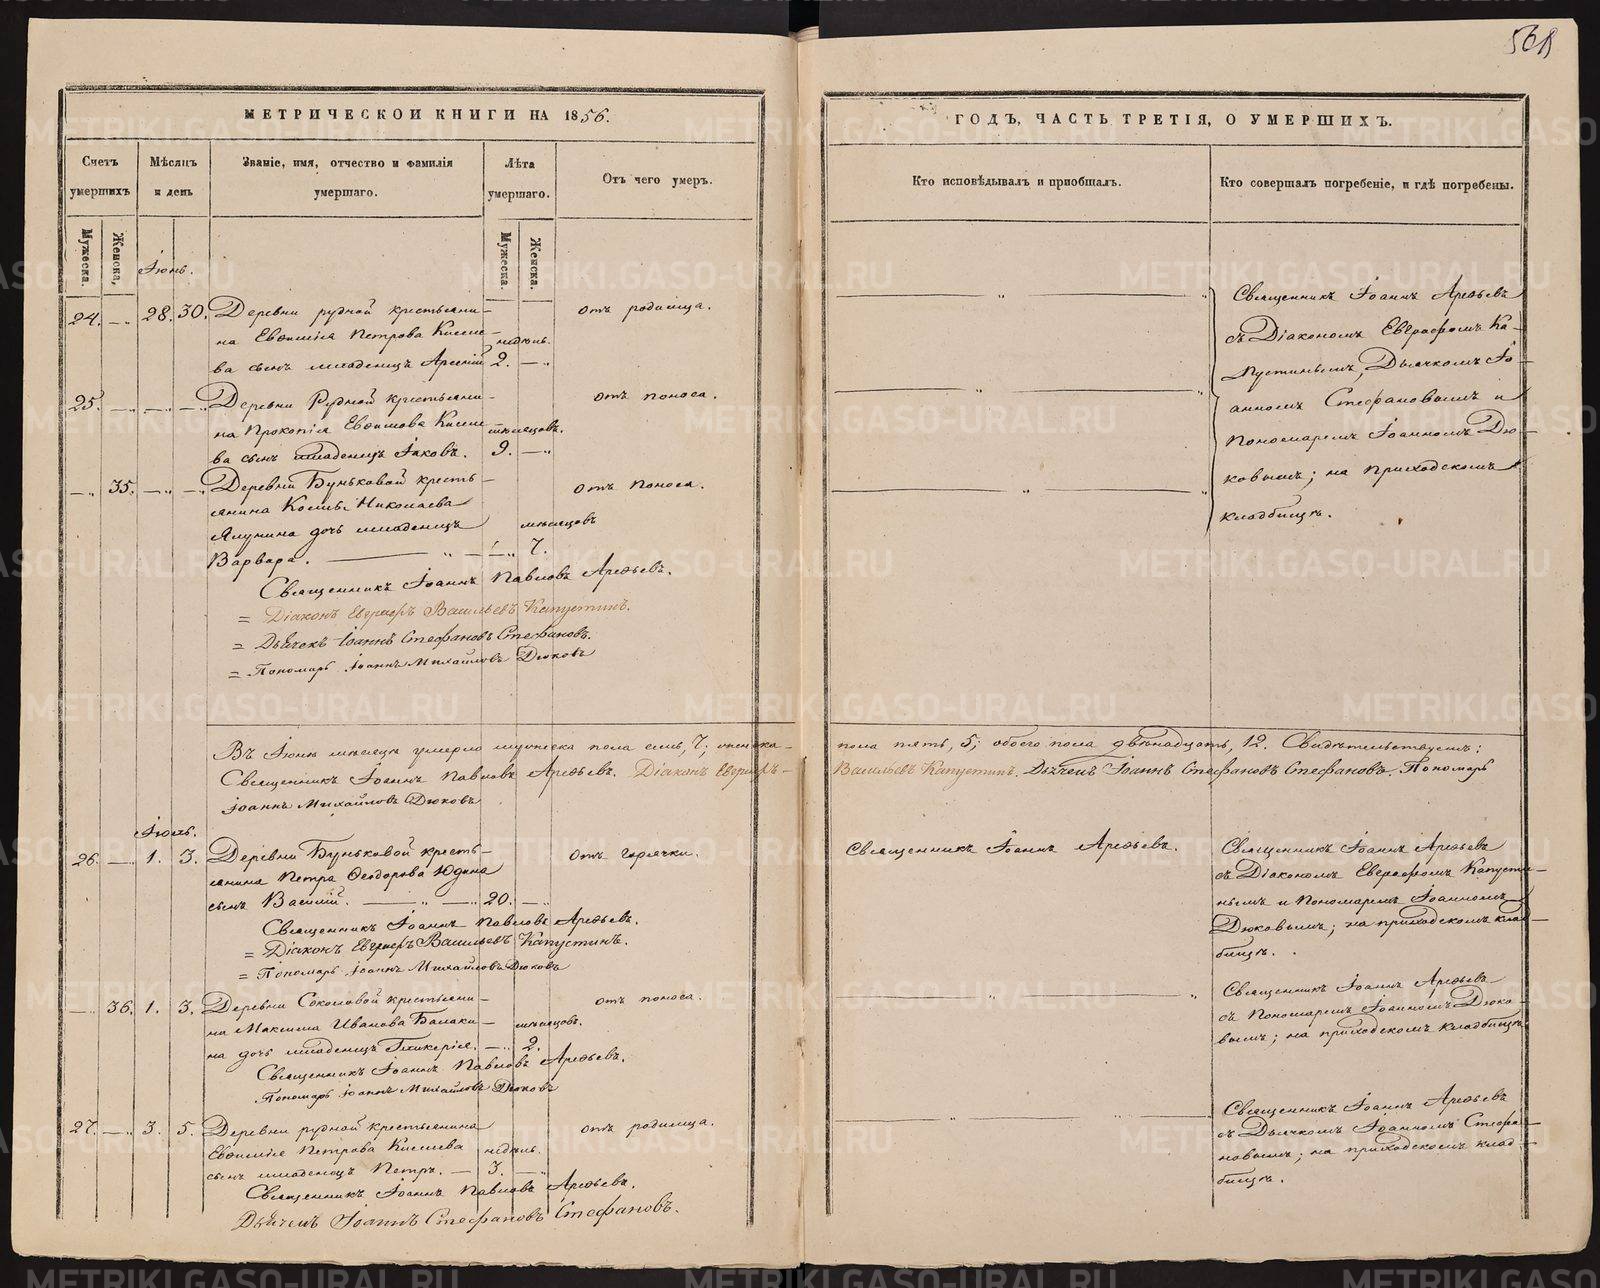 561
МЕТРИЧЕСКОЙ КНИГИ НА 1856.
Счетъ умершихъ
Мѣсяцъ и день
Званіе, имя, отчество и фамилія умершаго.
Лѣта умершаго.
Отъ чего умеръ.
Мужеска.
Женска.
Мужеска.
Женска.
Іюнь.
24. — 28. 30. Деревни рудной крестьяни-
отъ родимца.
на Евѳимія Петрова
недѣль.
ва сынъ младенецъ Арсеній 2. —
25. — — — Деревни Рудной крестьяни-
отъ поноса.
на Прокопія Евѳимова
мѣсяцовъ.
ва сынъ младенецъ Іаковъ. 9. —
— 35. — — Деревни Буньковой кресть-
отъ поноса.
янина Козмы Николаева
Ялунина дочь младенецъ
мѣсяцовъ
Варвара. — 7.
Священникъ Іоаннъ Павловъ Арефьевъ.
= Діаконъ Евграфъ Васильевъ Капустинъ.
= Дьячекъ Іоаннъ Стефановъ Стефановъ.
= Пономарь Іоаннъ Михайловъ Дюковъ
Въ Іюнѣ мѣсяцѣ умерло мужеска пола семь, 7; женска
Священникъ Іоаннъ Павловъ Арефьевъ. Діаконъ Евграфъ
Іоаннъ Михайловъ Дюковъ
Іюль.
26. — 1. 3. Деревни Буньковой кресть-
отъ горячки.
янина Петра Ѳеодорова Юдина
сынъ Василій. — 20. —
Священникъ Іоаннъ Павловъ Арефьевъ.
= Діаконъ Евграфъ Васильевъ Капустинъ.
= Пономарь Іоаннъ Михайловъ Дюковъ
— 36. 1. 3. Деревни Соколовой крестьяни-
отъ поноса.
на Максима Иванова Балаки-
мѣсяцовъ.
на дочь младенецъ Гликерія. — 2.
Священникъ Іоаннъ Павловъ Арефьевъ.
Пономарь Іоаннъ Михайловъ Дюковъ
27. — 3. 5. Деревни рудной крестьянина
отъ родимца.
Евѳимія Петрова
недѣль.
сынъ младенецъ Петръ. — 3. —
Священникъ Іоаннъ Павловъ Арефьевъ.
Дьячекъ Іоаннъ Стефановъ Стефановъ.
ГОДЪ, ЧАСТЬ ТРЕТІЯ, О УМЕРШИХЪ.
Кто исповѣдывалъ и пріобщалъ.
Кто совершалъ погребеніе, и гдѣ погребены.
Священникъ Іоаннъ Арефьевъ
съ Діакономъ Евграфомъ Ка-
пустинымъ, Дьячкомъ Іо-
анномъ Стефановымъ и
Пономаремъ Іоанномъ Дю-
ковымъ; на приходскомъ
кладбищѣ.
пола пять, 5; обоего пола двѣнадцать, 12. Свидѣтельствуемъ:
Васильевъ Капустинъ. Дьячекъ Іоаннъ Стефановъ Стефановъ. Пономарь
Священникъ Іоаннъ Арефьевъ.
Священникъ Іоаннъ Арефьевъ
съ Діакономъ Евграфомъ Капусти-
нымъ и Пономаремъ Іоанномъ
Дюковымъ; на приходскомъ клад-
бищѣ.
Священникъ Іоаннъ Арефьевъ
съ Пономаремъ Іоанномъ Дюко-
вымъ; на приходскомъ кладбищѣ.
Священникъ Іоаннъ Арефьевъ
съ Дьячкомъ Іоанномъ Стефа-
новымъ; на приходскомъ клад-
бищѣ.
METRIKI.GASO-URAL.RU